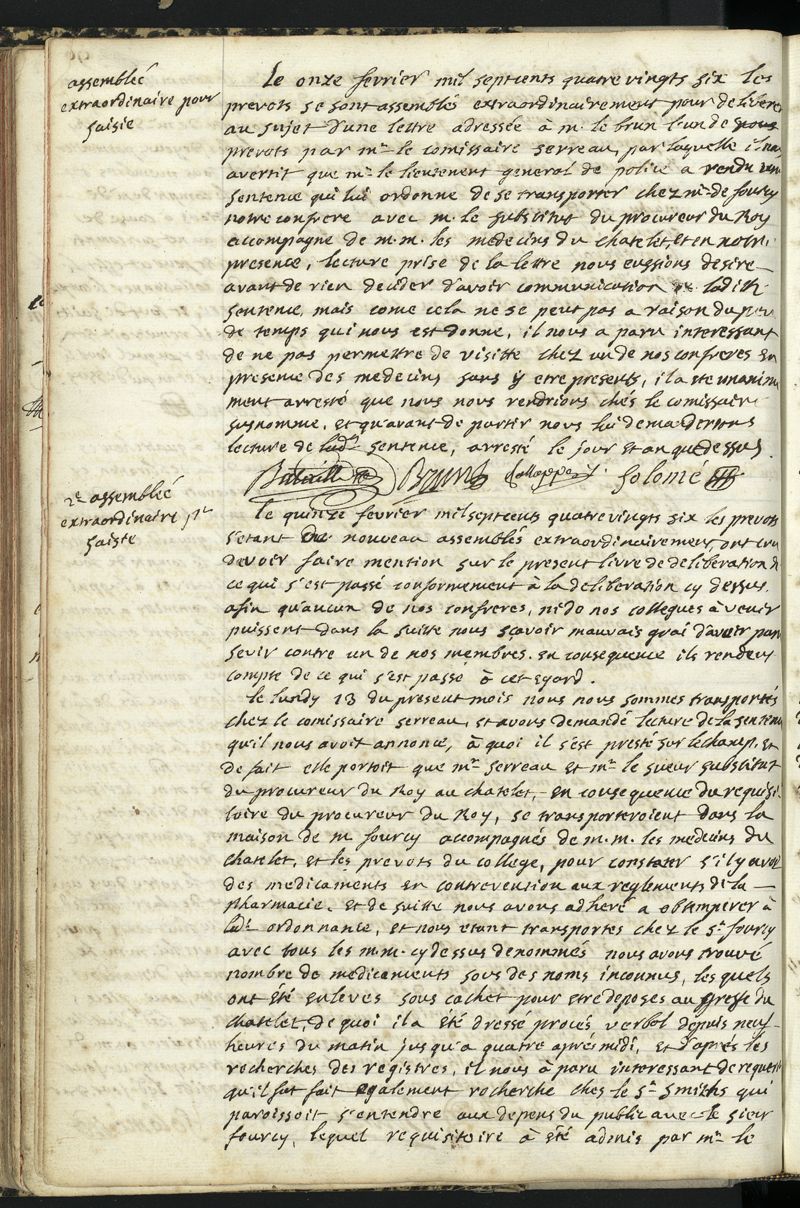 assembleé
extraordinaire pour
saisie
Le onze fevrier mil septcents quatre vingts six les
prevots se sont assemblés extraordinairement pour deliberer
au sujet d'une lettre adressée à m. le brun l'un de nous
prevots par mr. le comissaire serreau, par laquelle il nous
avertit que mr. le lieutenent general de police a rendu une
sentence qui lui ordonne de se transporter chez mr. de fourcy
notre confrere avec m. le substitut du procureur du Roy
accompagne de m.m. les medecins du chatelet, et en notre
presence, lecture prise de la lettre nous eussions desire
avant de rien decider d'avoir communication de ladith
sentence, mais come cela ne se peut pas a raison du peu
de temps qui nous est donne, il nous a paru interessant
de ne pas permettre de visitte chez un de nos confreres en
presence des medecins sans y etre presents, il a ete unanim
ment arresté que nous nous rendrions chés le comissaire
susnomme, et qu'avant de partir nous lui demanderons
lecture de lade. sentence, arresté le jour et an que dessus.
Bataille Brun solomé
2e. assembleé
extraordinaire pr.
saisie
le quinze fevrier mil septcents quatre vingts six les prevots
s'etant de nouveau assemblés extraordinairement, ont cru
devoir faire mention sur le present livre de deliberation de
ce qui s'est passé conformement à la deliberation cy dessus.
afin qu'aucun de nos confreres, ni de nos collegues à venir
puissent dans la suitte nous sçavoir mauvais grai d'avoir pan
sevir contre un de nos membres. en consequence ils rendent
compte de ce qui s'est passé à cet egard.
le lundy 13 du present mois nous nous sommes transportés
chez le comissaire serreau, et avons demandé lecture de la sentence
qu'il nous avoit annoncé, à quoi il s'est presté sur le champ. et
de fait elle portoit que mr. serreau et mr. le sueur substitut
du procureur du Roy au chatelet, en consequence du requisi-
toire du procureur du Roy, se transporteroient dans la
maison de m fourcy accompagnés de m.m. les medecins du
chatelet, et les prevots du college, pour constater s'il y avoit
des medicaments en contrevention aux reglements de la
pharmacie. et de suitte nous avons adheré a obtemperer à
lade. ordonnance, et nous etant transportes chez le sr. fourcy
avec tous les m.m. cy dessus denommés nous avons trouvé
nombre de medicaments sous des noms inconnus, les quels
ont été enleves sous cachet pour etre deposes au greffe du
chatelet, de quoi il a été dressé procés verbal depuis neuf
heures du matin jusqu'a quatre aprés midi, et d'aprés les
recherches des registres, il nous à paru interessant de reques
qu'il fut fait egalement recherche ches le sr. Smiths qui
paroissoit s'entendre aux depens du public avec le sieur
fourcy, lequel requisitoire à été admis par mr. le